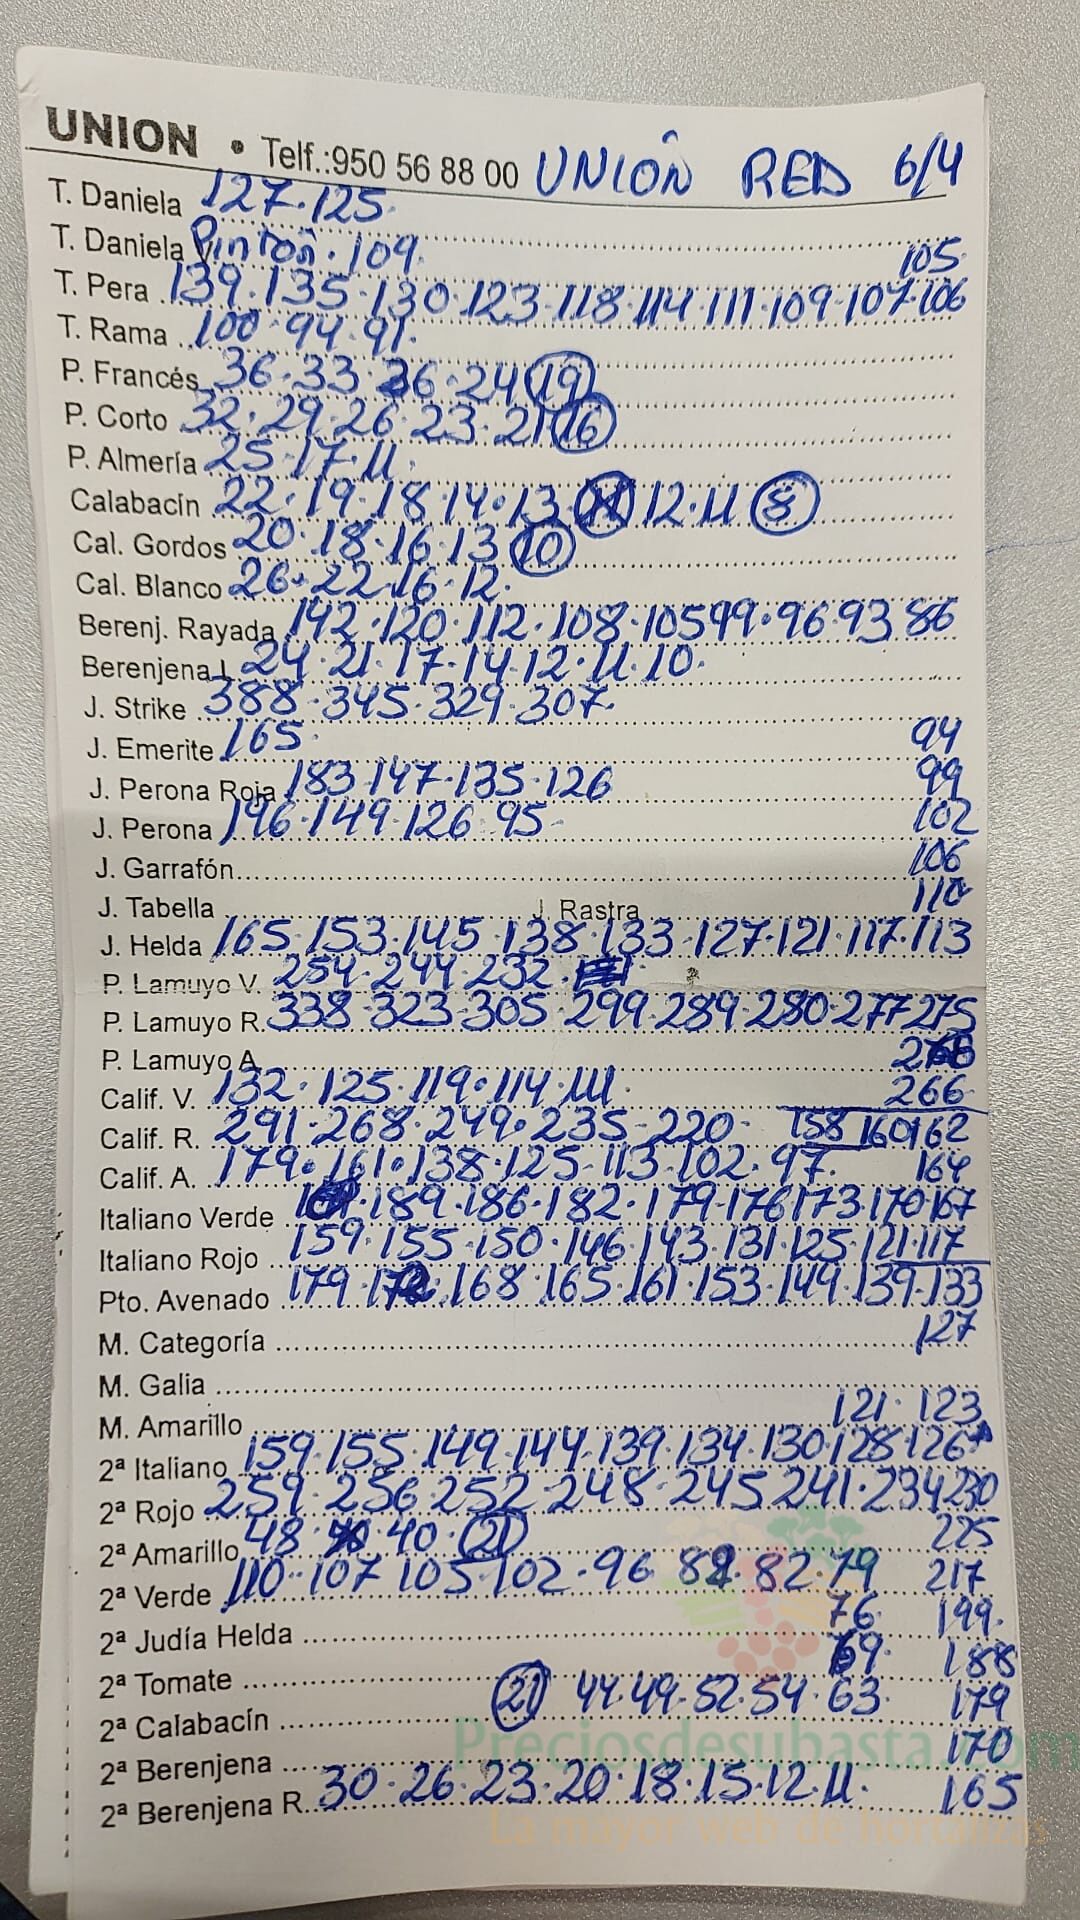 UNION • Telf.:950 56 88 00 UNION RED 6/4
T. Daniela 127.125.
T. Daniela Pinton.109. 105.
T. Pera 139.135.130.123.118.114.111.109.107.106
T. Rama 100.94.91.
P. Francés 36.33.26.24 19
P. Corto 32.29.26.23.21 16
P. Almería 25.17.11.
Calabacín 22.19.18.14.13 12.11 8
Cal. Gordos 20.18.16.13 10
Cal. Blanco 26.22.16.12.
Berenj. Rayada 142.120.112.108.105 99.96.93 86
Berenjena L 24.21.17.14.12.11.10.
J. Strike 388.345.329.307.
J. Emerite 165. 94
J. Perona Roja 183.147.135.126 99
J. Perona 196.149.126.95. 102
J. Garrafón 106
J. Tabella J. Rastra 110
J. Helda 165.153.145.138.133.127.121.117.113
P. Lamuyo V. 254.244.232.
P. Lamuyo R. 338.323.305.299.289.280.277 275
P. Lamuyo A.
Calif. V. 132.125.119.114.111. 266
Calif. R. 291.268.249.235.220. 158 160 162
Calif. A. 179.161.138.125.113.102.97. 164
Italiano Verde 189.186.182.179.176 173.170 167
Italiano Rojo 159.155.150.146.143.131.125.121.117
Pto. Avenado 179.172.168.165.161.153.149.139.133
M. Categoría 127
M. Galia
M. Amarillo 121.123
2ª Italiano 159.155.149.144.139.134.130.128.126
2ª Rojo 259.256.252.248.245 241.234 230
2ª Amarillo 48 40.21 225
2ª Verde 110.107 105.102.96 89.82.79 217
2ª Judía Helda 76. 199.
2ª Tomate 69. 188
2ª Calabacín 21 44.49.52.54.63. 179
2ª Berenjena 170
2ª Berenjena R. 30.26.23.20.18.15.12.11. 165
Preciosdesubasta.com
La mayor web de hortalizas